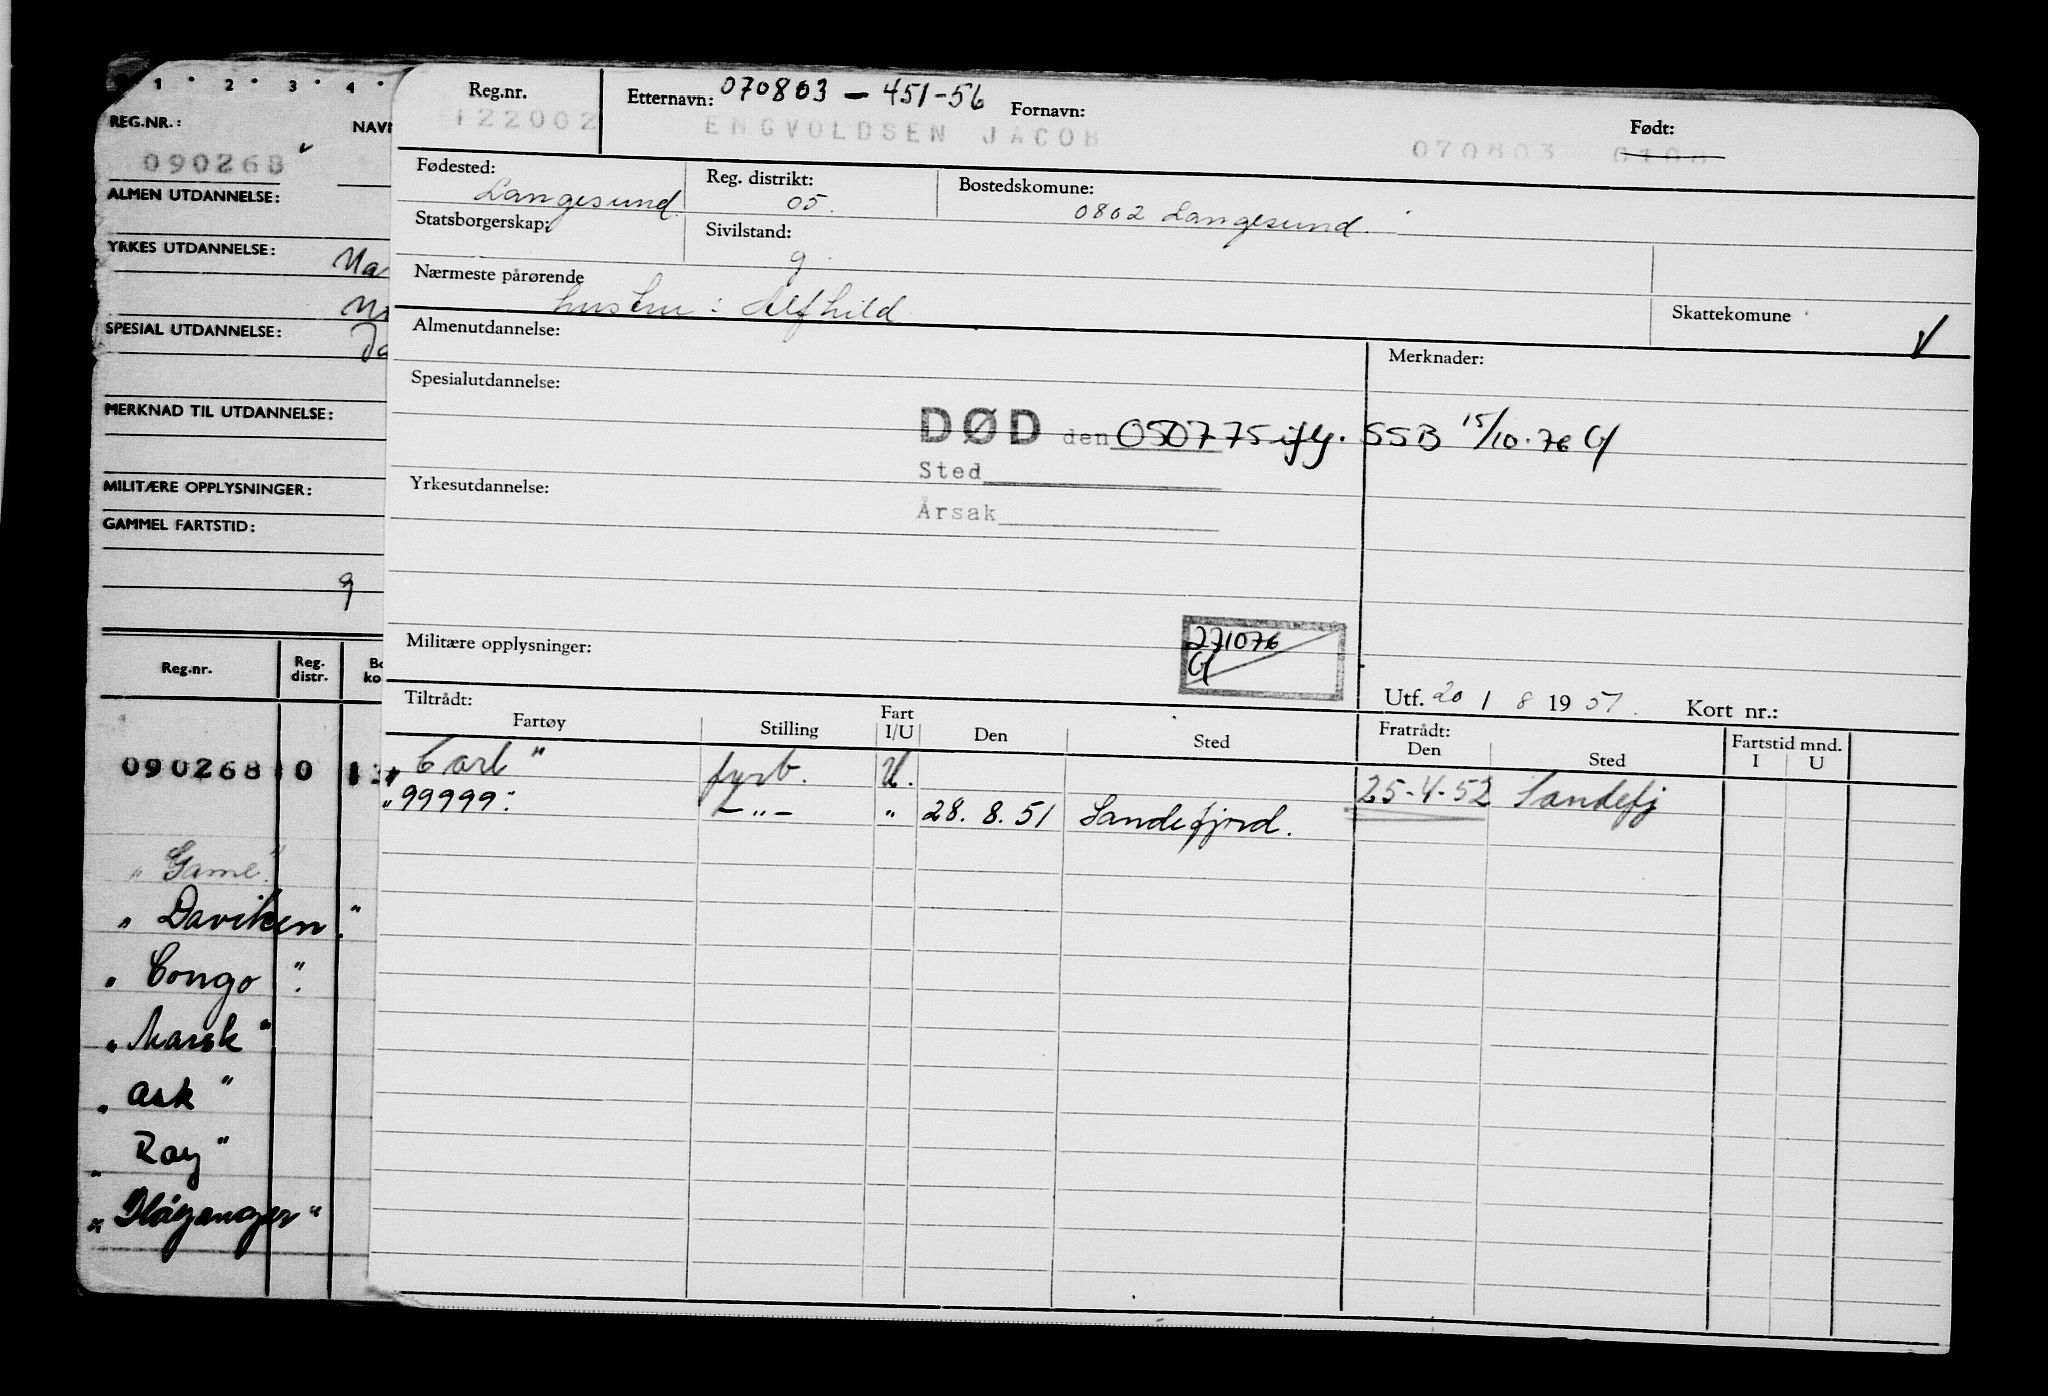 1 2 3 4
REG.NR.: NAVN
090268
ALMEN UTDANNELSE:
YRKES UTDANNELSE:
SPESIAL UTDANNELSE:
MERKNAD TIL UTDANNELSE:
MILITÆRE OPPLYSNINGER:
GAMMEL FARTSTID:
g
Reg.nr. Reg. distr.
090268 0
"Game"
"Daviken"
"Congo"
"Marsk"
"Ask"
"Roy"
"Høyanger"
Reg.nr. Etternavn: 070803 - 451-56 Fornavn: Født:
122002 ENGVOLDSEN JACOB 070803 0108
Fødested: Langesund Reg. distrikt: 05. Bostedskomune: 0802 Langesund.
Statsborgerskap: Sivilstand: g
Nærmeste pårørende hustru: Alfhild Skattekomune
Almenutdannelse: Merknader:
Spesialutdannelse:
DØD den 050775 iflg. SSB 15/10.76
Sted
Yrkesutdannelse:
Årsak
Militære opplysninger: 271076
Utf. 20 / 8 1951. Kort nr.:
Tiltrådt: Fartøy Stilling Fart I/U Den Sted Fratrådt: Den Sted Fartstid mnd. I U
"Carl" fyrb. U. 25-4-52 Sandefj
"99999" -"- " 28. 8. 51 Sandefjord.